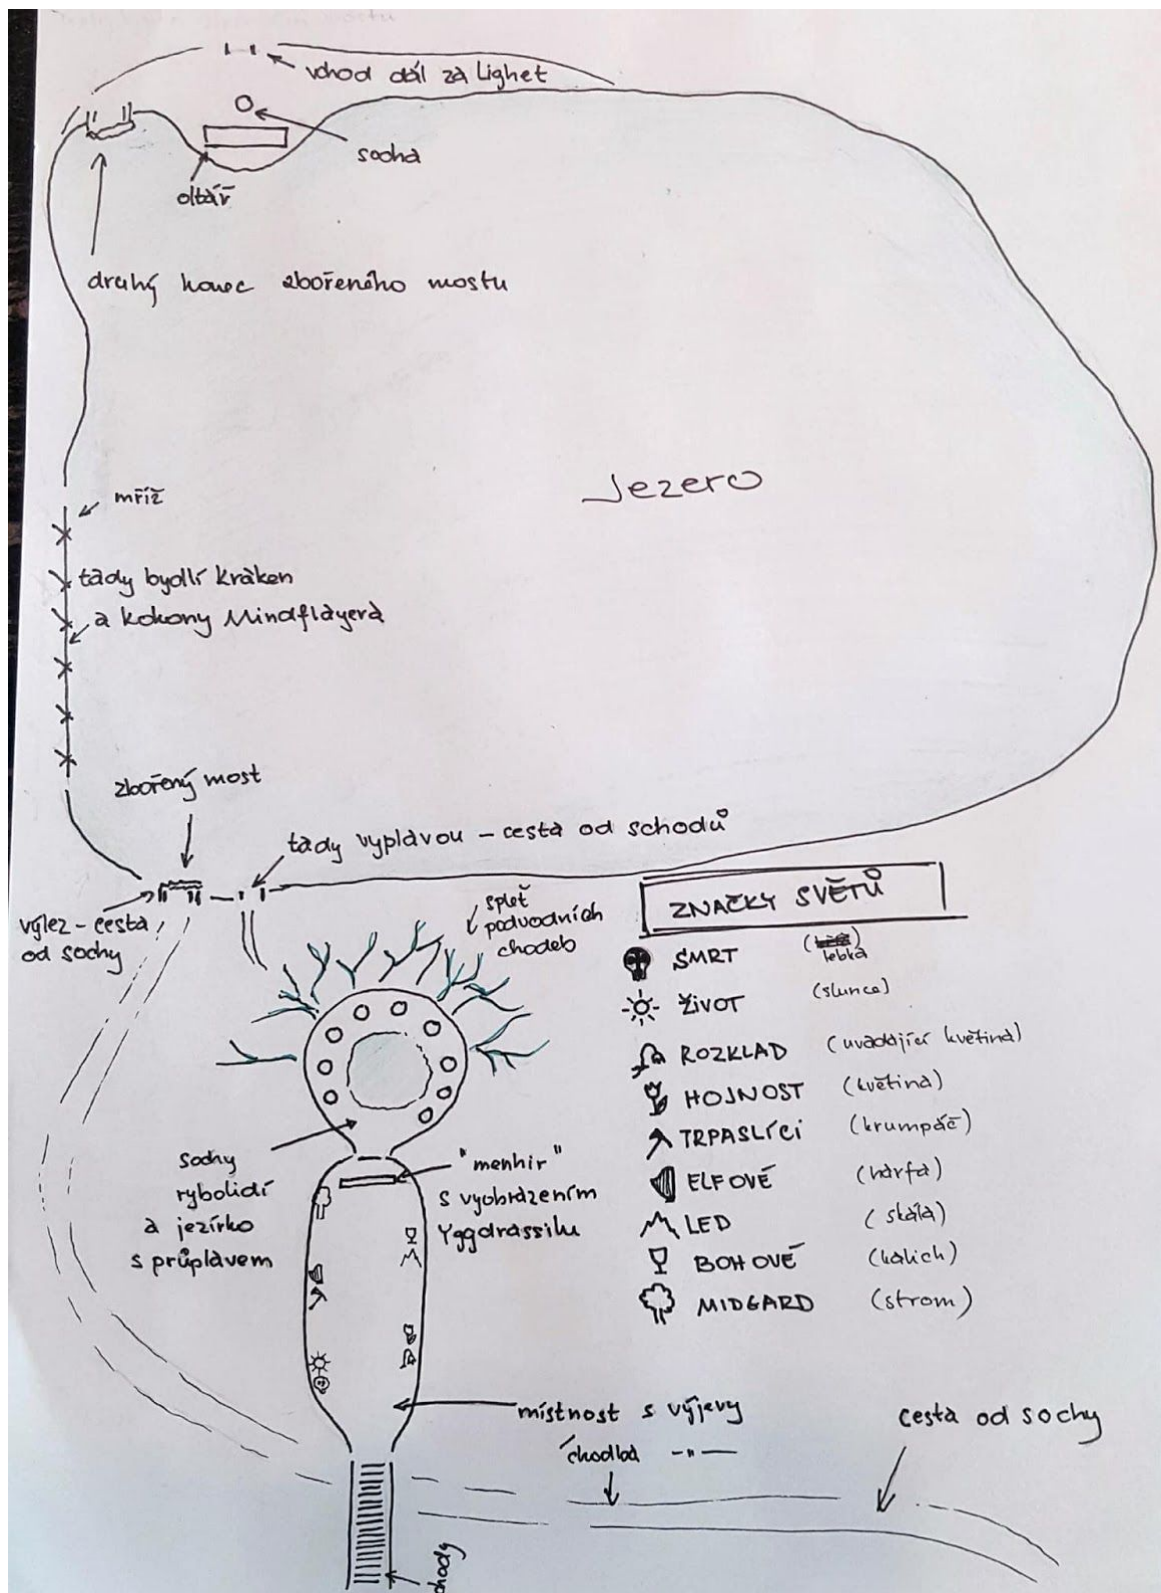 vchod dál za Lighet
socha
oltář
druhý konec zbořeného mostu
Jezero
mříž
tady bydlí kraken
a kokony Mindflayera
zbořený most
tady vyplavou – cesta od schodů
výlez – cesta
od sochy
spleť
podvodních
chodeb
ZNAČKY SVĚTŮ
SMRT (lebka)
ŽIVOT (slunce)
ROZKLAD (uvadající květina)
HOJNOST (květina)
TRPASLÍCI (krumpáč)
ELFOVÉ (harfa)
LED (skála)
BOHOVÉ (kalich)
MIDGARD (strom)
sochy
rybolidí
a jezírko
s průplavem
"menhir"
s vyobrazením
Yggdrassilu
místnost s výjevy
chodba -"-
cesta od sochy
schody